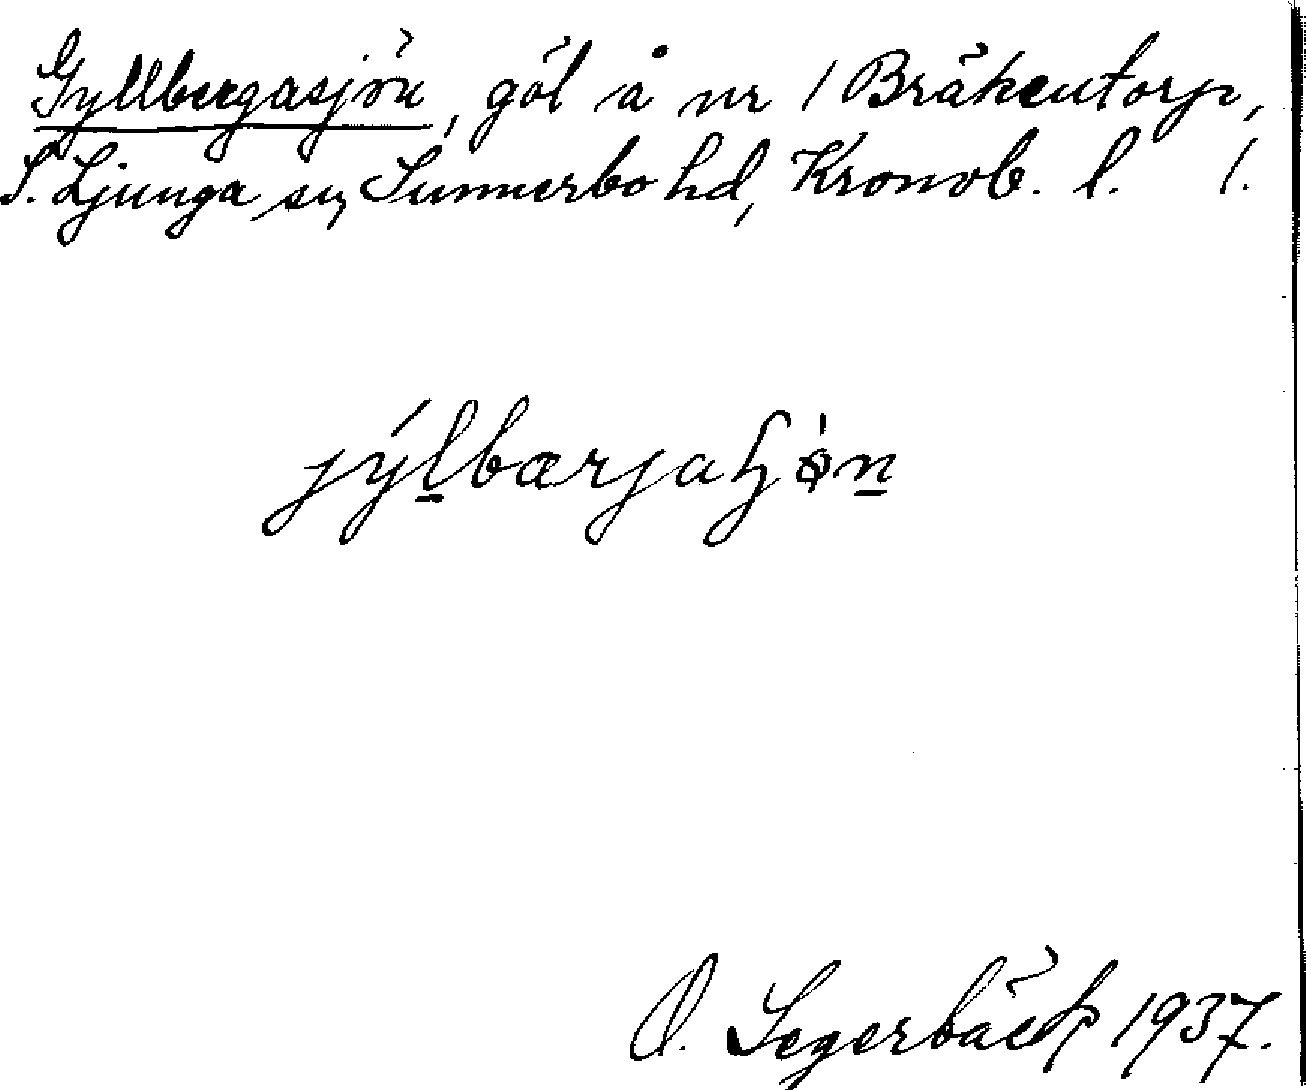 Gyllbergasjön, göl å nr 1 Bräkentorp,
S. Ljunga sn, Sunnerbo hd, Kronob. l. 1.
jýl̲bærjaɧøn̲
O. Segerbäck 1937.